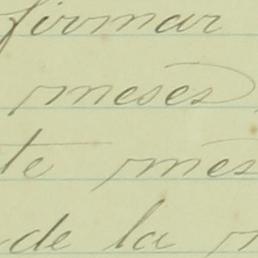 firmar
meses
te mes
de la